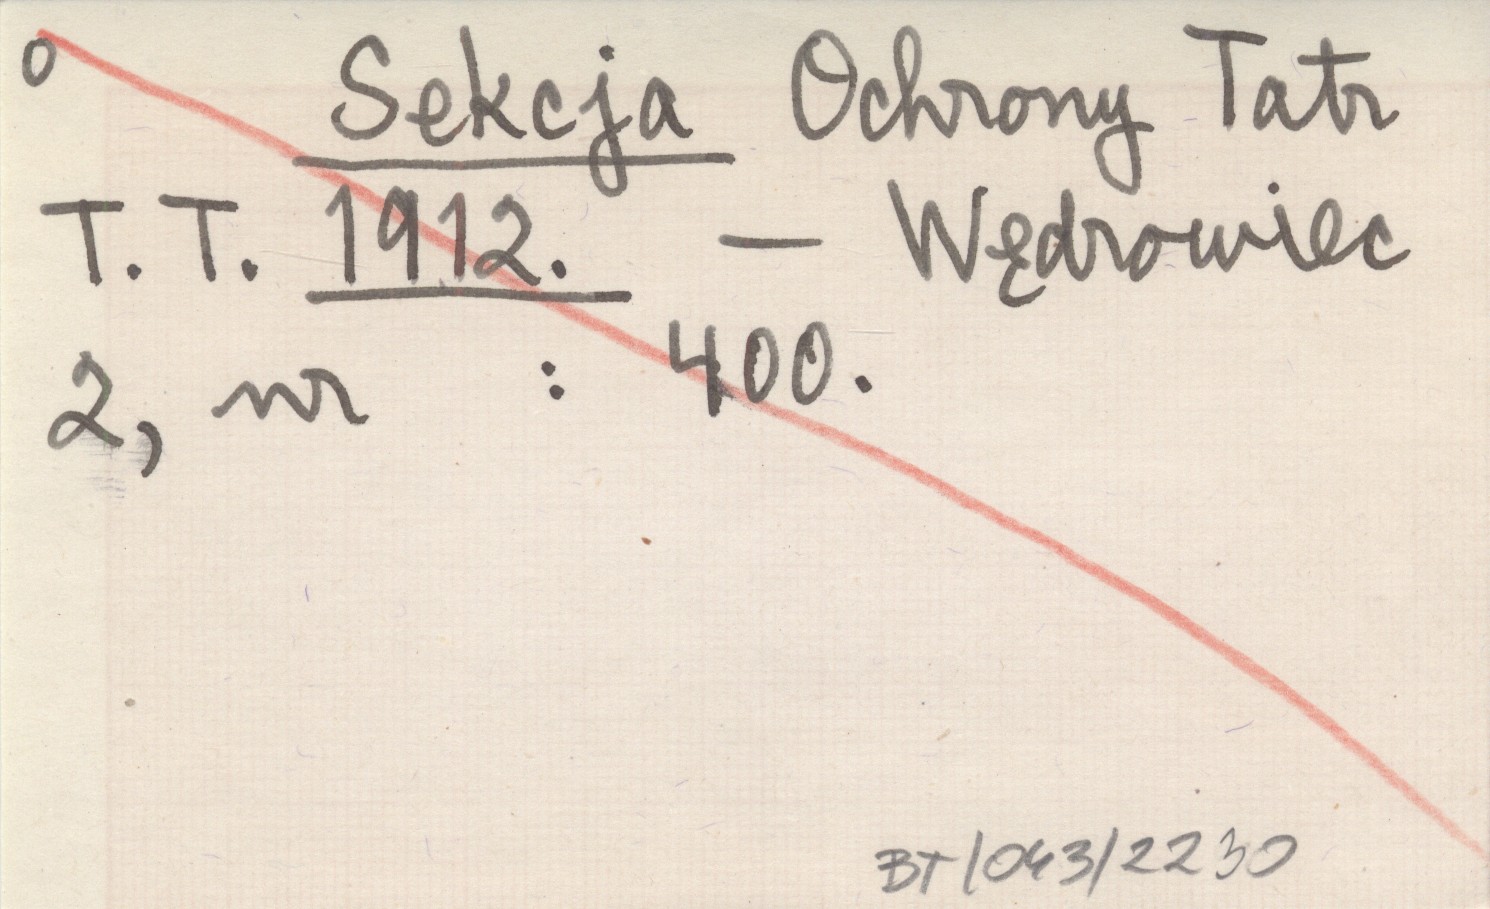 o Sekcja Ochrony Tatr
T. T. 1912. — Wędrowiec
2, nr : 400.
BT/043/2230